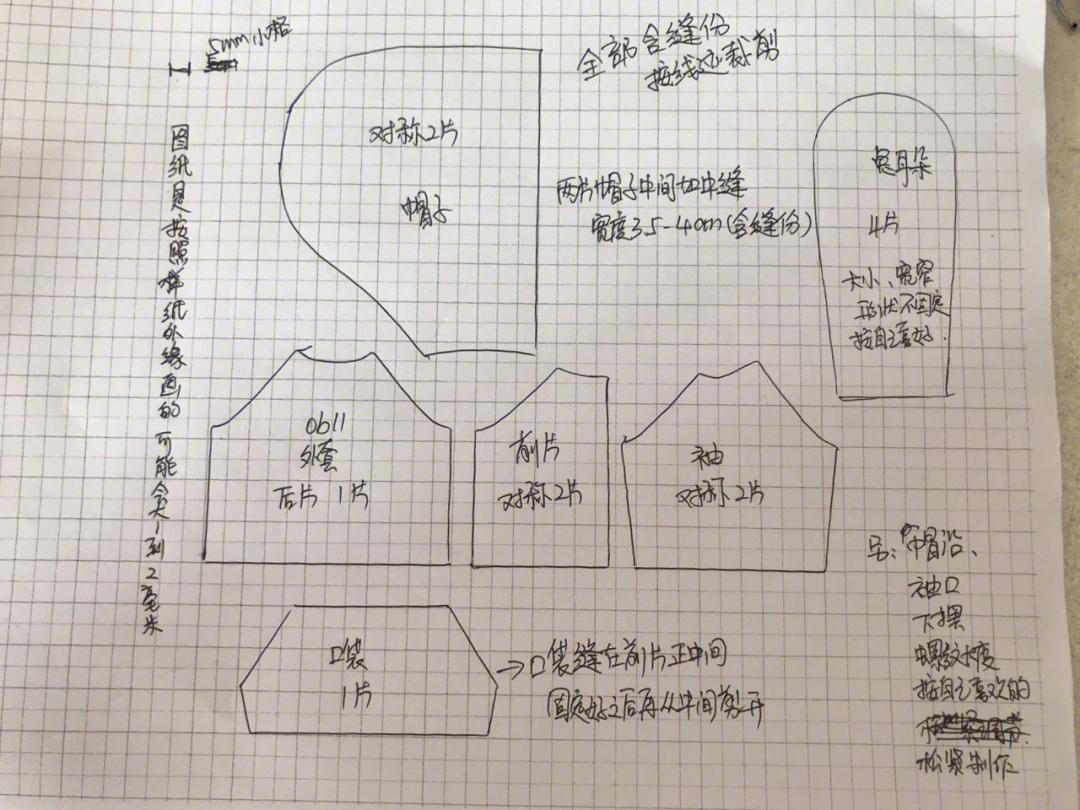 5mm小格
全部含缝份
按线迹裁剪
图纸是按照样纸外缘画的可能会大1到2毫米
对称2片
帽子
两片帽子中间加中缝
宽度3.5-4cm(含缝份)
兔耳朵
4片
大小、宽窄
形状不固定
按自己喜好.
ob11
外套
后片 1片
前片
对称2片
袖
对称2片
口袋
1片
→口袋缝在前片正中间
固定好之后再从中间剪开
另:帽沿、
袖口
下摆
螺纹长度
按自己喜欢的
松紧制作